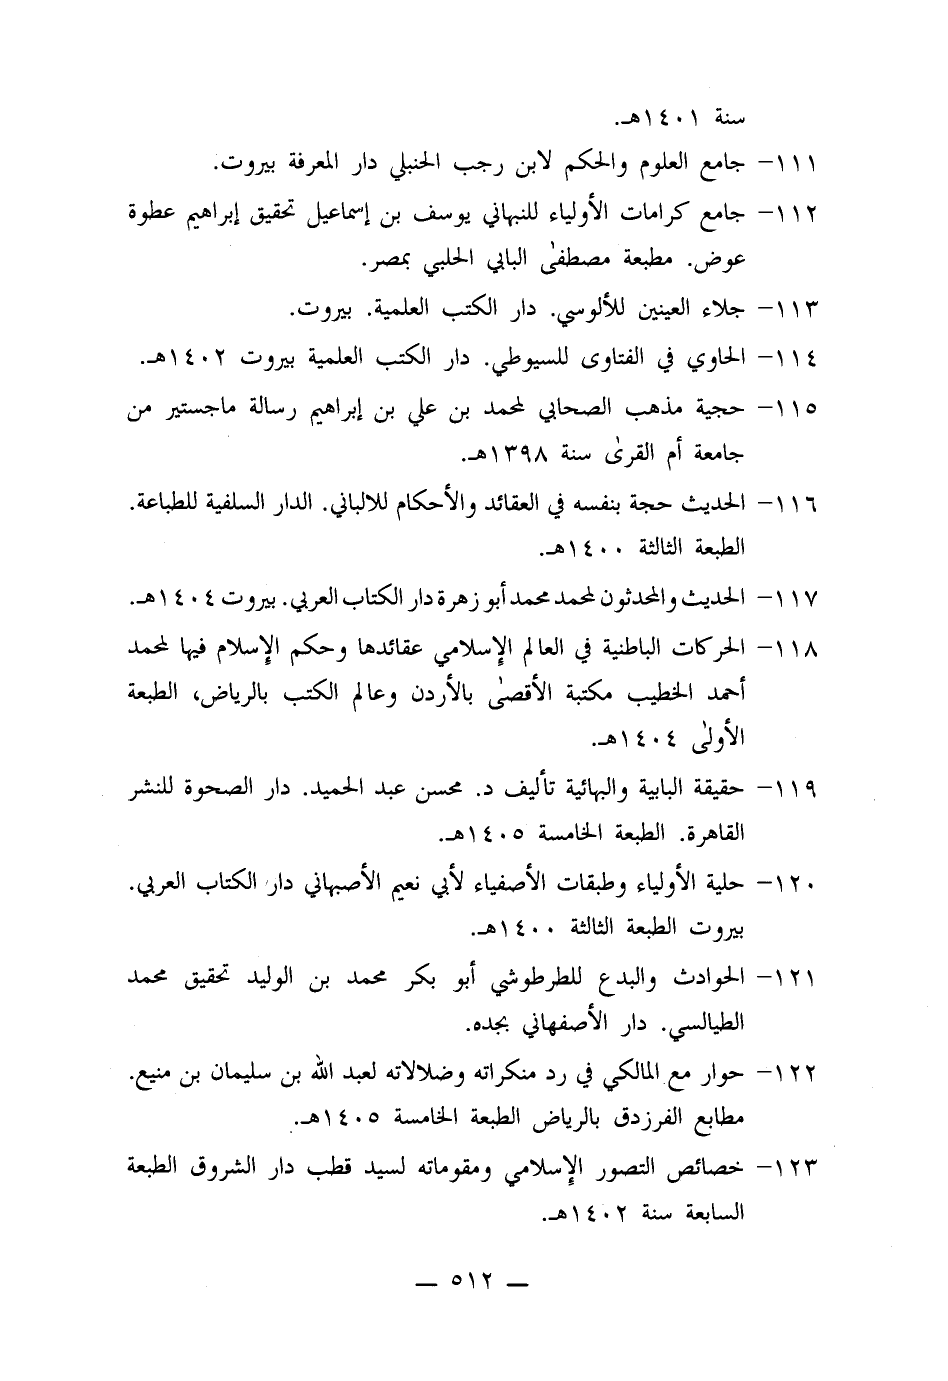 سنة ١٤٠١هـ.
١١١- جامع العلوم والحكم لابن رجب الحنبلي دار المعرفة بيروت.
١١٢- جامع كرامات الأولياء للنبهاني يوسف بن إسماعيل تحقيق إبراهيم عطوة
عوض. مطبعة مصطفىٰ البابي الحلبي بمصر.
١١٣- جلاء العينين للألوسي. دار الكتب العلمية. بيروت.
١١٤- الحاوي في الفتاوى للسيوطي. دار الكتب العلمية بيروت ١٤٠٢هـ.
١١٥- حجية مذهب الصحابي لمحمد بن علي بن إبراهيم رسالة ماجستير من
جامعة أم القرىٰ سنة ١٣٩٨هـ.
١١٦- الحديث حجة بنفسه في العقائد والأحكام للالباني. الدار السلفية للطباعة.
الطبعة الثالثة ١٤٠٠هـ.
١١٧- الحديث والمحدثون لمحمد محمد أبو زهرة دار الكتاب العربي. بيروت ١٤٠٤هـ.
١١٨- الحركات الباطنية في العالم الإسلامي عقائدها وحكم الإسلام فيها لمحمد
أحمد الخطيب مكتبة الأقصىٰ بالأردن وعالم الكتب بالرياض، الطبعة
الأولىٰ ١٤٠٤هـ.
١١٩- حقيقة البابية والبهائية تأليف د. محسن عبد الحميد. دار الصحوة للنشر
القاهرة. الطبعة الخامسة ١٤٠٥هـ.
١٢٠- حلية الأولياء وطبقات الأصفياء لأبي نعيم الأصبهاني دار الكتاب العربي.
بيروت الطبعة الثالثة ١٤٠٠هـ.
١٢١- الحوادث والبدع للطرطوشي أبو بكر محمد بن الوليد تحقيق محمد
الطيالسي. دار الأصفهاني بجده.
١٢٢- حوار مع المالكي في رد منكراته وضلالاته لعبد الله بن سليمان بن منيع.
مطابع الفرزدق بالرياض الطبعة الخامسة ١٤٠٥هـ.
١٢٣- خصائص التصور الإسلامي ومقوماته لسيد قطب دار الشروق الطبعة
السابعة سنة ١٤٠٢هـ.
— ٥١٢ —